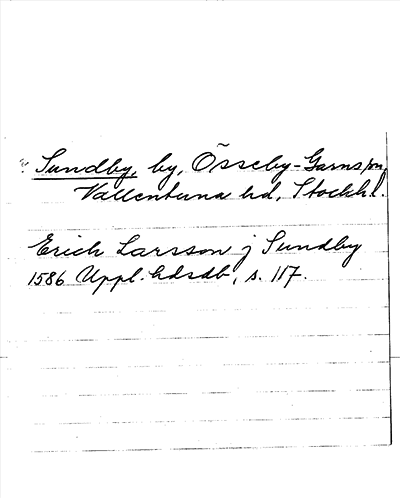 Sundby, by, Össeby-Garns sn,
Vallentuna hd, Stockhl.
Erich Larsson j Sundby
1586 Uppl. hdsdb, s. 117.